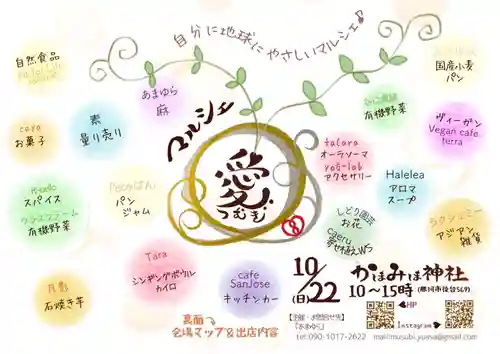 自分に地球にやさしいマルシェ♪
自然食品
国産小麦
パン
あまゆら
麻
有機野菜
caya
お菓子
素
量り売り
マルシェ
ヴィーガン
Vegan cafe
terra
talara
オーラソーマ
アクセサリー
愛
つむぎ
Halelea
アロマ
スープ
スパイス
有機野菜
パン
ジャム
しどり園芸
お花
caeru
寄せ植えWS
アジアン
雑貨
⑧
Tara
シンギングボウル
カイロ
cafe
SanJose
キッチンカー
月影
石焼き芋
10/22
(日)
かほみほ神社
10〜15時
HP
Instagram
裏面
会場マップ&出店内容
tel:090-1017-2622
mail:musubi.yuasa@gmail.com